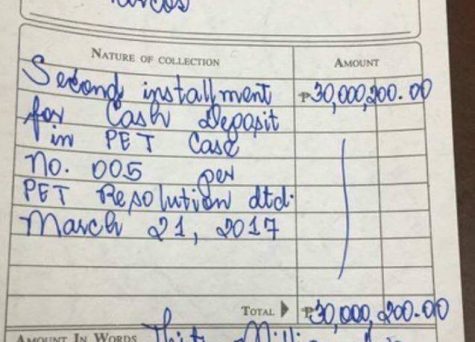 Marcos
NATURE OF COLLECTION AMOUNT
Second installment ₱30,000,200.00
for Cash Deposit
in PET Case
No. 005 per
PET Resolution dtd.
March 21, 2017
TOTAL ₱30,000,200.00
AMOUNT IN WORDS Thirty Million